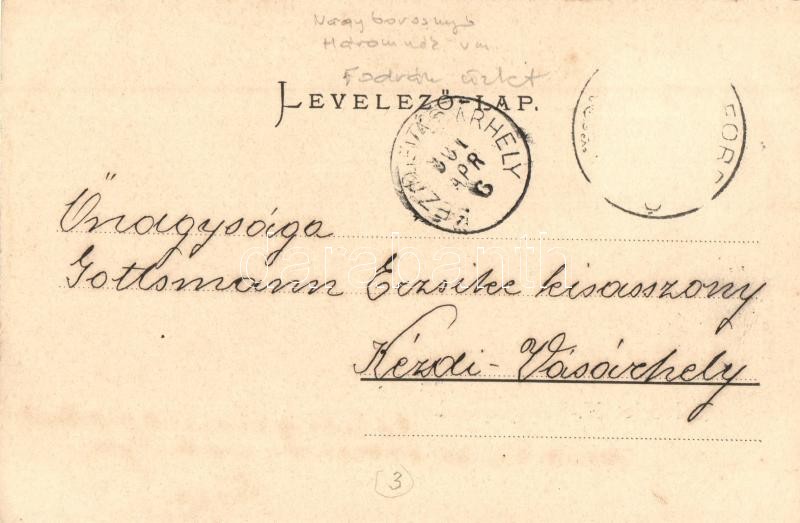 Nagyborosnyó
Háromszék vm
Fodrán üzlet
LEVELEZŐ-LAP.
KÉZDIVÁSÁRHELY
APR
6
FOR
Őnagysága
Gottsmann Erzsike kisasszony
Kézdi-Vásárhely
darabanth
3